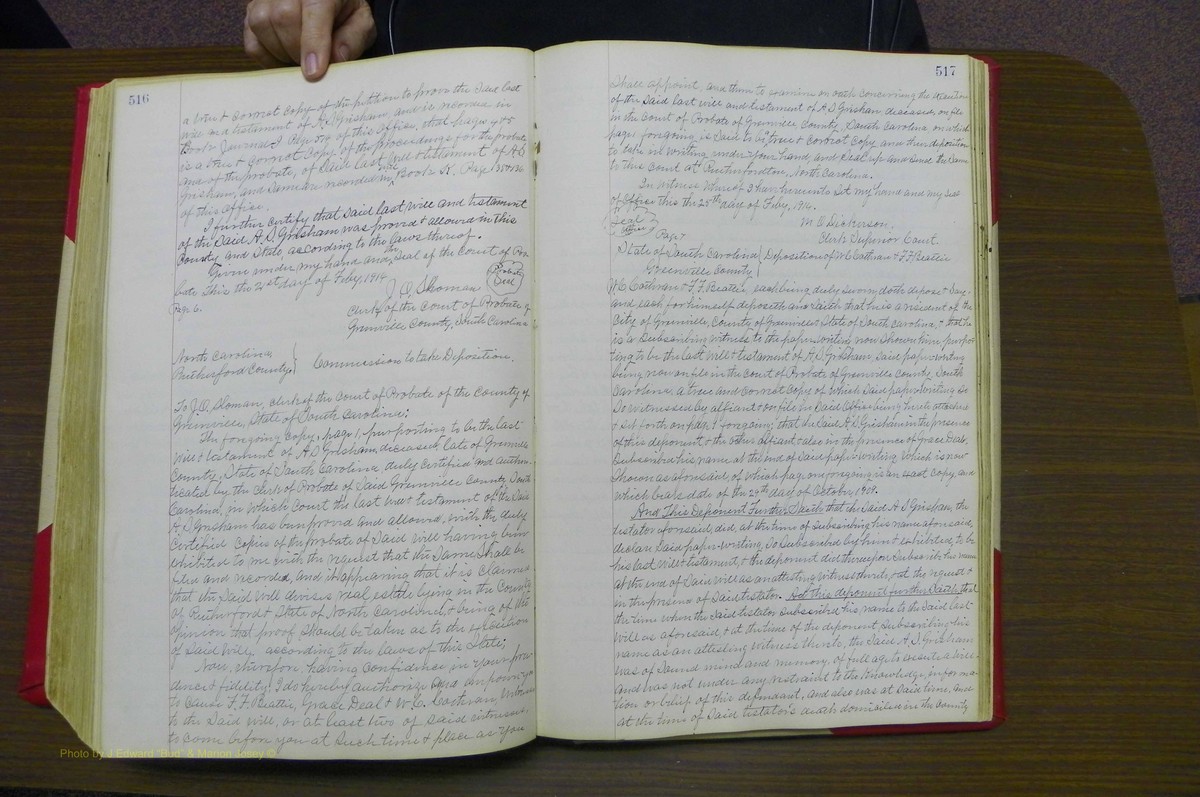 516
a true & correct copy of the petition to prove the said last
will and testament of A.D. Grisham and is recorded in
Book Journal Page 574 of this Office, that pages 4 & 5
is a true & correct copy of the proceedings for the probate
and of the probate, of said last will & testament of A.D.
Grisham, and same are recorded in Will Book Page
of this Office.
I further certify that said last will and testament
of the said A.D. Grisham was proved & allowed in this
County and State, according to the laws thereof.
Given under my hand and the seal of the Court of Pro-
bate This the 21st day of Feby. 1914.
Probate
Seal
J.Q. Sloman
Page 6.
Clerk of the Court of Probate of
Greenville County, South Carolina
North Carolina,
Rutherford County.
Commission to take Deposition.
To J.Q. Sloman, clerk of the Court of Probate of the County of
Greenville, State of South Carolina:
The forgoing copy, page 1, purporting to be the last
will & testament of A.D. Grisham, deceased, late of Greenville
County, State of South Carolina, duly certified and authen-
ticated by the Clerk of Probate of said Greenville County South
Carolina, in which Court the last will & testament of the said
A.D. Grisham has been proved and allowed, with the duly
certified copies of the probate of said will having been
exhibited to me with the request that the same shall be
filed and recorded, and it appearing that it is claimed
that the said will devises real estate lying in the County
of Rutherford & State of North Carolina, & being of the
opinion that proof should be taken as to the execution
of said will, according to the laws of this State;
Now, therefore, having confidence in your pru-
dence & fidelity, I do hereby authorize and empower you
to cause F.F. Beattie, Grace Deal & W.C. Cothran, witnesses
to the said will, or at least two of said witnesses,
to come before you at such time & place as you
517
shall appoint, and them to examine on oath concerning the execution
of the said last will and testament of A.D. Grisham deceased, on file
in the Court of Probate of Greenville County, South Carolina, on which
page 1 forgoing, is said to be a true & correct copy and their deposition
to take in writing under your hand, and seal up and send the same
to this Court at Rutherfordton, North Carolina.
In Witness whereof I have hereunto set my hand and my seal
of Office this the 25th day of Feby, 1914.
Seal
Office
M.O. Dickerson,
Clerk Superior Court.
Page 7
State of South Carolina
Greenville County
Deposition of W.C. Cothran & F.F. Beattie
W.C. Cothran & F.F. Beattie each being duly sworn, doth depose & say,
and each for himself deposeth and saith that he is a resident of the
City of Greenville, County of Greenville & State of South Carolina, & that he
is a subscribing witness to the paper-writing now shown him purpor-
ting to be the last will & testament of A.D. Grisham, said paper-writing
being now on file in the Court of Probate of Greenville County, South
Carolina, a true and correct copy of which said paper-writing so
so witnessed by affiant & on file in said Office being hereto attached
& set forth on page 1 forgoing; that the said A.D. Grisham in the presence
of this deponent & the other affiant & also in the presence of Grace Deal,
subscribed his name at the end of said paper-writing which is now
shown as aforesaid, of which page one forgoing is an exact copy, and
which bears date of the 29th day of October, 1909.
And This Deponent Further Saith that the said A.D. Grisham, the
testator aforesaid, did, at the time of subscribing his name aforesaid,
declare said paper-writing, so subscribed by him & exhibited, to be
his last will & testament, & the deponent did thereupon subscribe his name
at the end of said will as an attesting witness thereto, & at the request &
in the presence of said testator. And this deponent further saith, that
the time when the said testator subscribed his name to the said last
will as aforesaid, & at the time of the deponent subscribing his
name as an attesting witness thereto, the said A.D. Grisham
was of sound mind and memory, of full age to execute a will
and was not under any restraint to the knowledge, infor-ma-
tion or belief of this defendant, and also was at said time, and
at the time of said testator's death domiciled in the County
Photo by J Edward "Bud" & Marion Josey ©